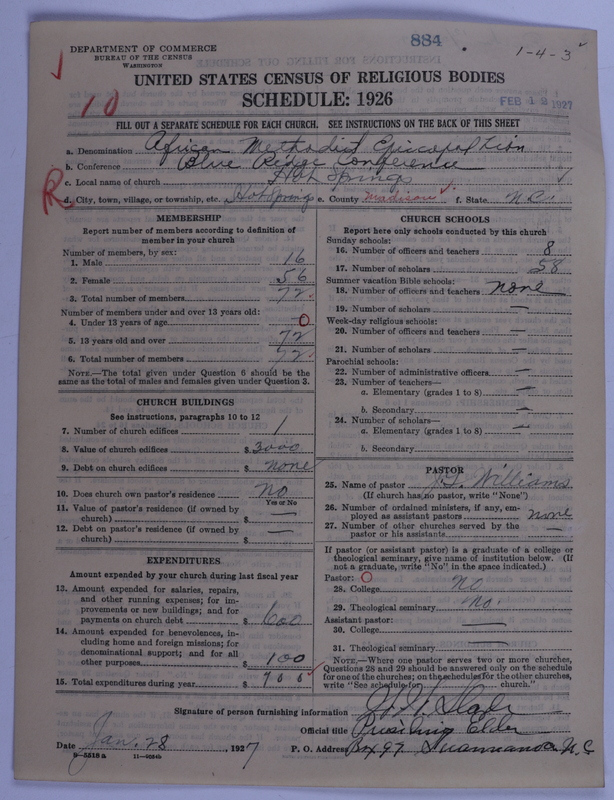 884
1-4-3
DEPARTMENT OF COMMERCE
BUREAU OF THE CENSUS
WASHINGTON
10
UNITED STATES CENSUS OF RELIGIOUS BODIES
SCHEDULE: 1926
FEB 12 1927
FILL OUT A SEPARATE SCHEDULE FOR EACH CHURCH. SEE INSTRUCTIONS ON THE BACK OF THIS SHEET
a. Denomination African Methodist Episcopal Zion
b. Conference Blue Ridge Conference
c. Local name of church Hot Springs
R
d. City, town, village, or township, etc. Hot Springs e. County Madison f. State N.C.
MEMBERSHIP
Report number of members according to definition of member in your church
Number of members, by sex:
1. Male 16
2. Female 56
3. Total number of members 72
Number of members under and over 13 years old:
4. Under 13 years of age 0
5. 13 years old and over 72
6. Total number of members 72
NOTE.—The total given under Question 6 should be the same as the total of males and females given under Question 3.
CHURCH BUILDINGS
See instructions, paragraphs 10 to 12
7. Number of church edifices 1
8. Value of church edifices $ 3000
9. Debt on church edifices $ none
10. Does church own pastor's residence No
Yes or No
11. Value of pastor's residence (if owned by church) $ —
12. Debt on pastor's residence (if owned by church) $ —
EXPENDITURES
Amount expended by your church during last fiscal year
13. Amount expended for salaries, repairs, and other running expenses; for improvements or new buildings; and for payments on church debt $ 600
14. Amount expended for benevolences, including home and foreign missions; for denominational support; and for all other purposes $ 100
15. Total expenditures during year $ 700
CHURCH SCHOOLS
Report here only schools conducted by this church
Sunday schools:
16. Number of officers and teachers 8
17. Number of scholars 58
Summer vacation Bible schools:
18. Number of officers and teachers none
19. Number of scholars —
Week-day religious schools:
20. Number of officers and teachers —
21. Number of scholars —
Parochial schools:
22. Number of administrative officers —
23. Number of teachers—
a. Elementary (grades 1 to 8) —
b. Secondary —
24. Number of scholars—
a. Elementary (grades 1 to 8) —
b. Secondary —
PASTOR
25. Name of pastor Williams
(If church has no pastor, write "None")
26. Number of ordained ministers, if any, employed as assistant pastors none
27. Number of other churches served by the pastor or his assistants —
If pastor (or assistant pastor) is a graduate of a college or theological seminary, give name of institution below. (If not a graduate, write "No" in the space indicated.)
Pastor: O
28. College No
29. Theological seminary No.
Assistant pastor:
30. College —
31. Theological seminary —
NOTE.—Where one pastor serves two or more churches, Questions 28 and 29 should be answered only on the schedule for one of the churches; on the schedules for the other churches, write "See schedule for church."
Signature of person furnishing information
Official title Presiding Elder
Date Jan. 28, 1927 P. O. Address Bx 97 Swannanoa N.C.
8-5518a